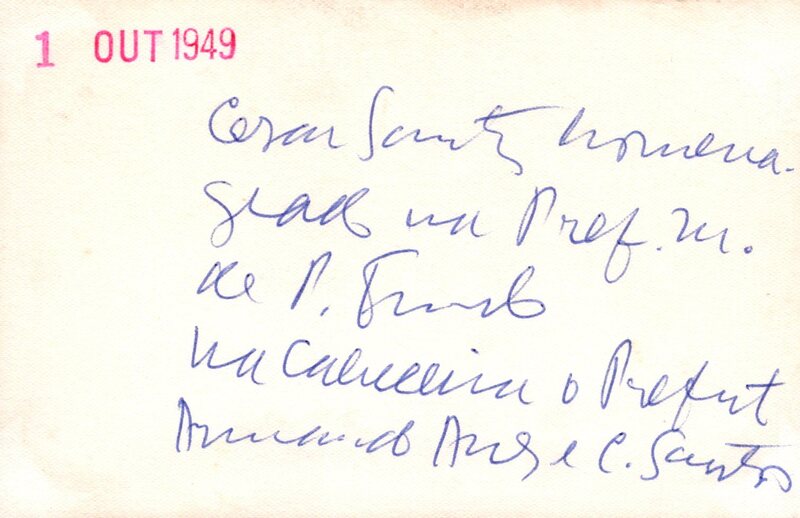 1 OUT 1949
Cesar Santos homena-
geado na Pref. M.
de P. Fundo
na cabeceira o Prefeit
Armando Annes e C. Santos